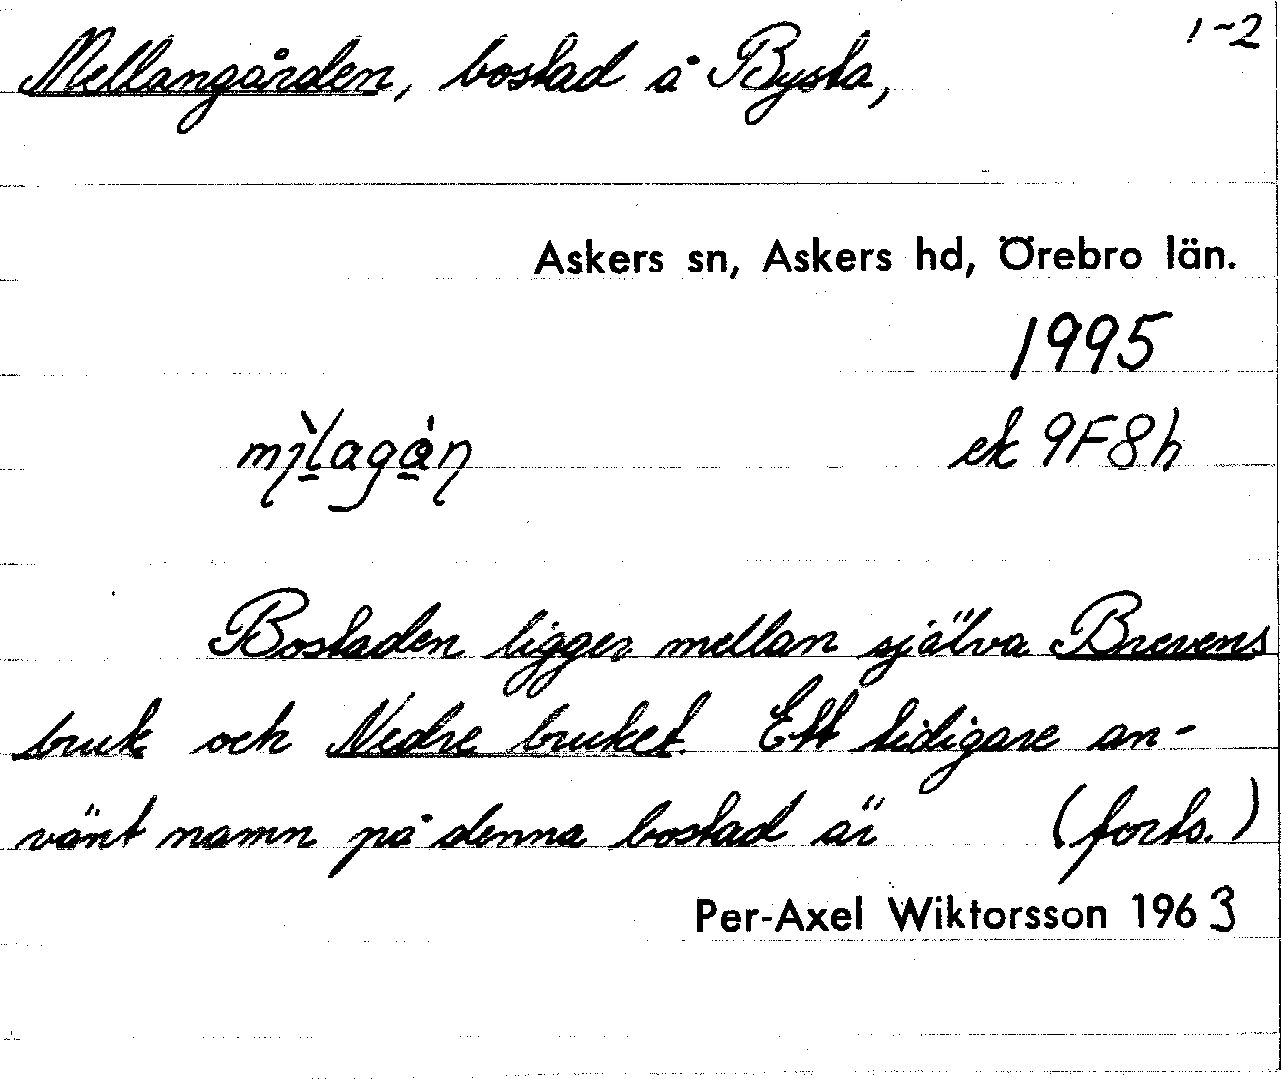 1-2
Mellangården, bostad å Bysta,
Askers sn, Askers hd, Örebro län.
1995
ek 9F8h
Bostaden ligger mellan själva Brevens
bruk och Nedre bruket. Ett tidigare an-
vänt namn på denna bostad är (forts.)
Per-Axel Wiktorsson 1963